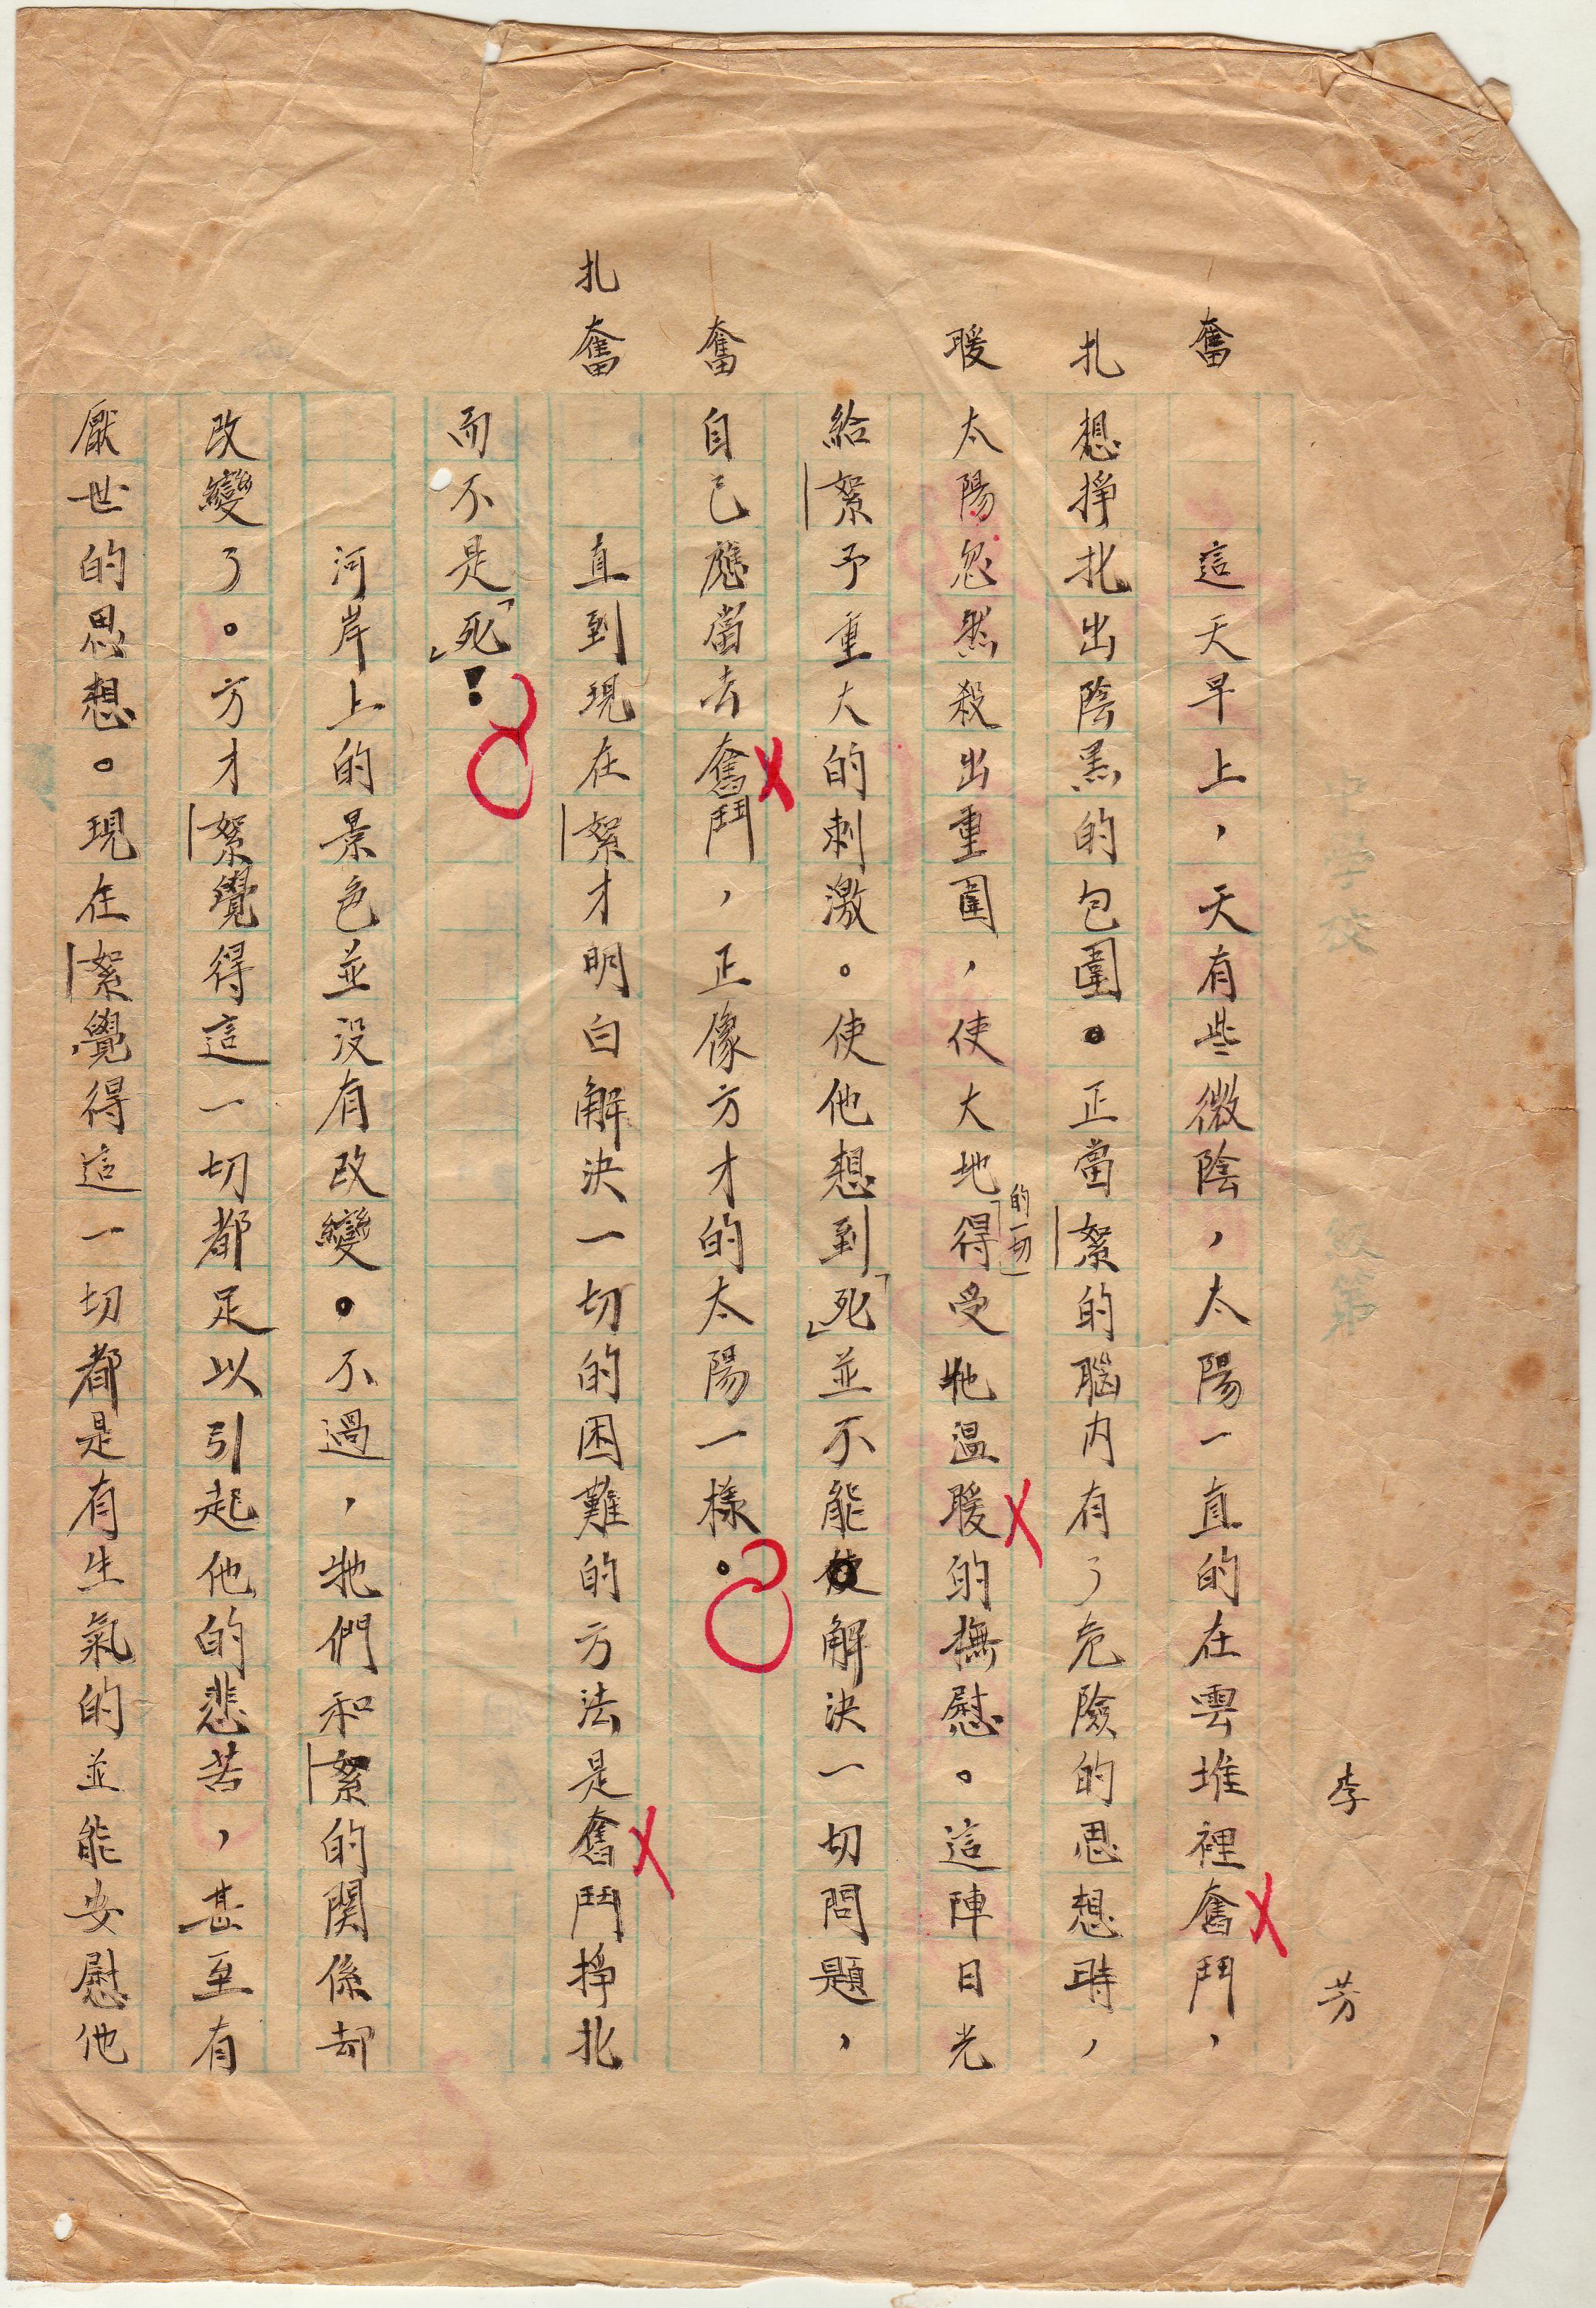 李芳
奮
這天早上，天有些微陰，太陽一直的在雲堆裡奮鬥，
扎
想掙扎出陰黑的包圍。正當絮的腦內有了危險的思想時，
暖
太陽忽然殺出重圍，使大地「的一切」得受牠温暖的撫慰。這陣日光
給絮予重大的刺激。使他想到「死」並不能解決一切問題，
奮
自己應當去奮鬥，正像方才的太陽一樣。
扎奮
直到現在絮才明白解決一切的困難的方法是奮鬥掙扎
而不是「死」！
河岸上的景色並没有改變。不過，牠們和絮的関係却
改變了。方才絮覺得這一切都足以引起他的悲苦，甚至有
厭世的思想。現在絮覺得這一切都是有生氣的並能安慰他